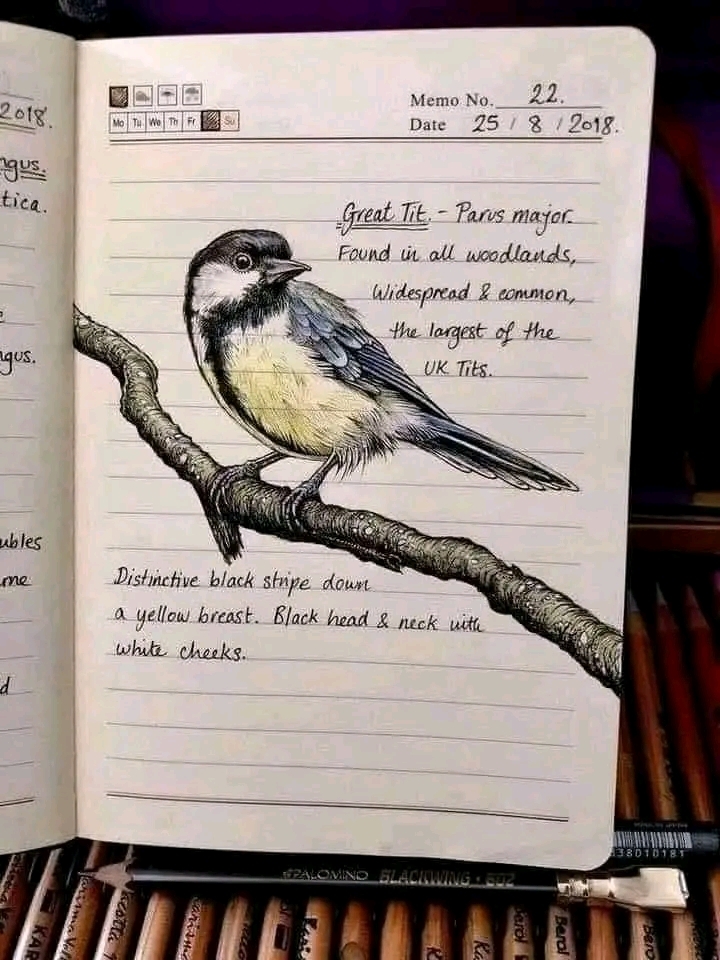 2018.
ngus.
tica.
ngus.
ubles
me
d
Memo No. 22.
Mo Tu We Th Fr Su
Date 25 / 8 / 2018.
Great Tit. - Parus major.
Found in all woodlands,
Widespread & common,
the largest of the
UK Tits.
Distinctive black stripe down
a yellow breast. Black head & neck with
white cheeks.
38010181
PALOMINO BLACKWING 602
KAR
Berol
Berol